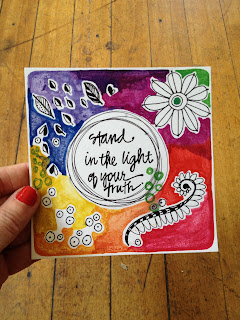 stand
in the light
of your
truth